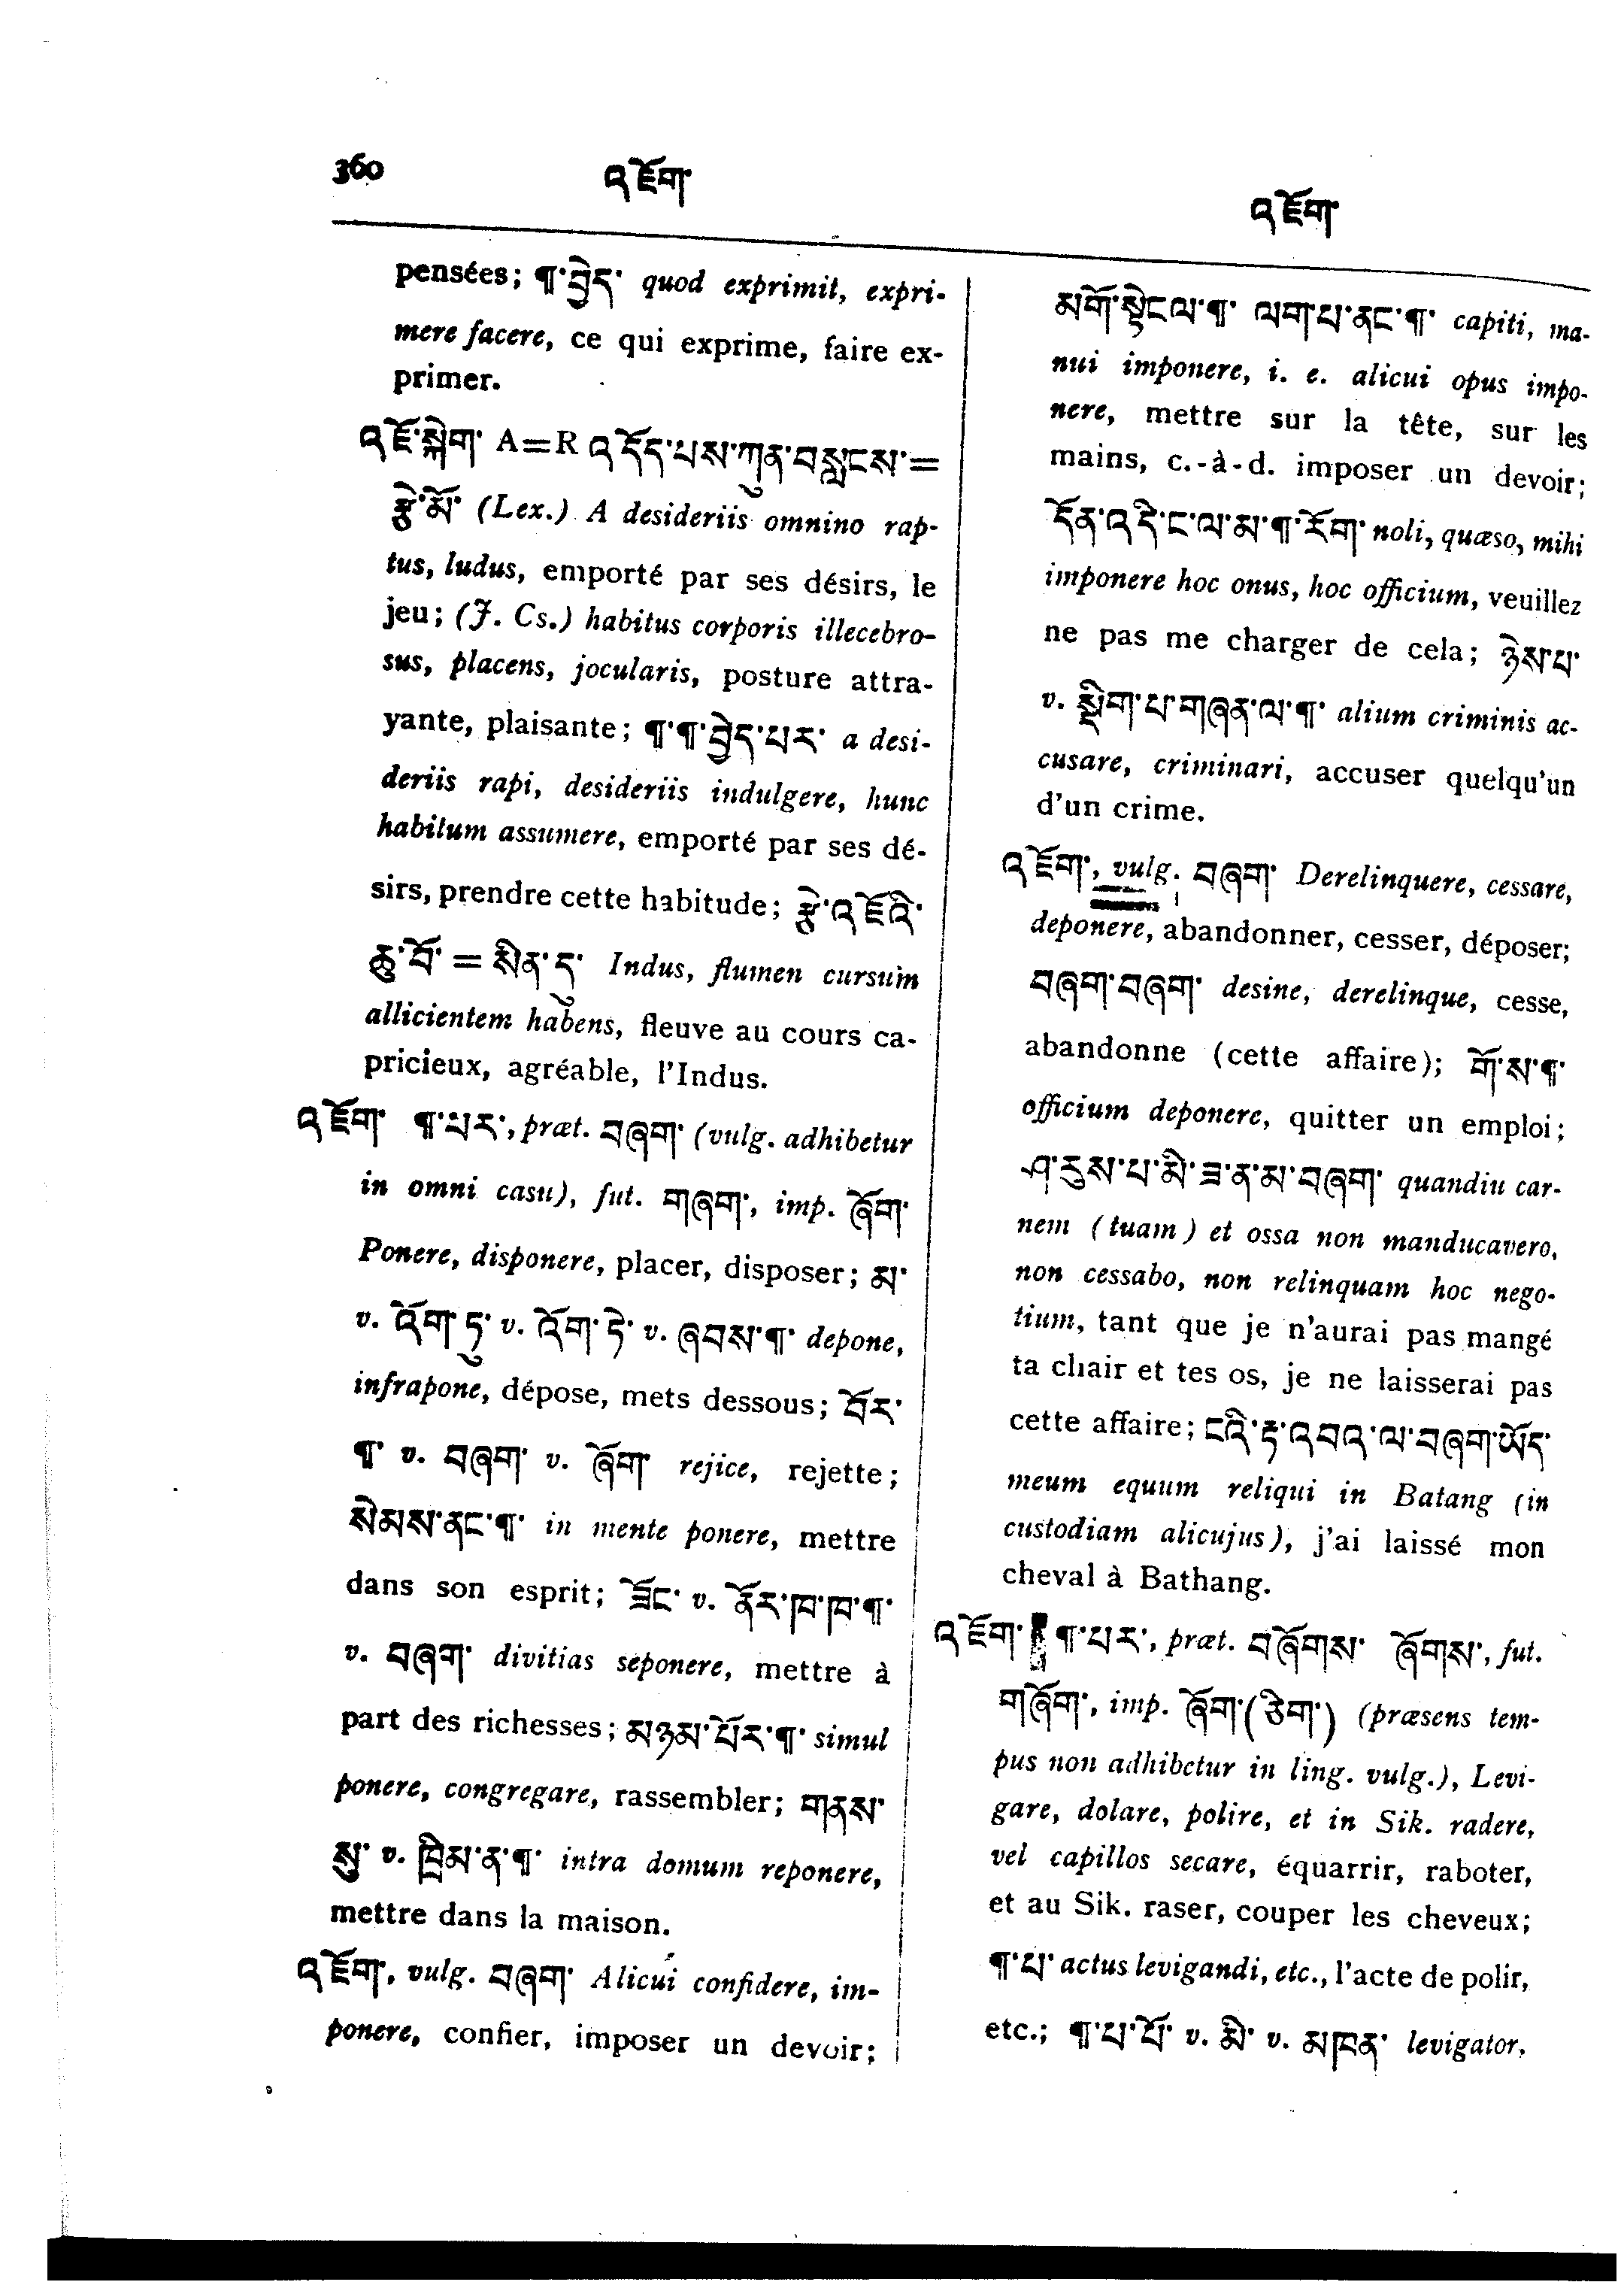 360
འཇོག་
འཇོག་
pensées; ¶་བྱེད་ quod exprimit, expri-
mere facere, ce qui exprime, faire ex-
primer.
འཇོ་སྒེག་ A=R འདོད་པས་ཀུན་བསླངས་=
རྩེ་མོ་ (Lex.) A desideriis omnino rap-
tus, ludus, emporté par ses désirs, le
jeu; (J. Cs.) habitus corporis illecebro-
sus, placens, jocularis, posture attra-
yante, plaisante; ¶་¶་བྱེད་པར་ a desi-
deriis rapi, desideriis indulgere, hunc
habitum assumere, emporté par ses dé-
sirs, prendre cette habitude; རྩེ་འཇོའི་
ཆུ་བོ་ = སིན་དུ་ Indus, flumen cursum
allicientem habens, fleuve au cours ca-
pricieux, agréable, l'Indus.
འཇོག་ ¶་པར་, præt. བཞག་ (vulg. adhibetur
in omni casu), fut. གཞག་, imp. ཞོག་
Ponere, disponere, placer, disposer; མ་
v. འོག་ཏུ་ v. འོག་ཏེ་ v. ཞབས་¶་ depone,
infrapone, dépose, mets dessous; བོར་
¶་ v. བཞག་ v. ཞོག་ rejice, rejette;
སེམས་ནང་¶་ in mente ponere, mettre
dans son esprit; ཟོང་ v. ནོར་ཁ་ཁ་¶་
v. བཞག་ divitias seponere, mettre à
part des richesses; མཉམ་པོར་¶་ simul
ponere, congregare, rassembler; གནས་
སུ་ v. ཁྲིམ་ན་¶་ intra domum reponere,
mettre dans la maison.
འཇོག་, vulg. བཞག་ Alicui confidere, im-
ponere, confier, imposer un devoir;
མགོ་སྟེངལ་¶་ ལག་པ་ནང་¶་ capiti, ma-
nui imponere, i. e. alicui opus impo-
nere, mettre sur la tête, sur les
mains, c.-à-d. imposer un devoir;
དོན་འདི་ང་ལ་མ་¶་རོག་ noli, quæso, mihi
imponere hoc onus, hoc officium, veuillez
ne pas me charger de cela; ཉེས་པ་
v. སྡིག་པ་གཞན་ལ་¶་ alium criminis ac-
cusare, criminari, accuser quelqu'un
d'un crime.
འཇོག་, vulg. བཞག་ Derelinquere, cessare,
deponere, abandonner, cesser, déposer;
བཞག་བཞག་ desine, derelinque, cesse,
abandonne (cette affaire); གོ་ས་¶་
officium deponere, quitter un emploi;
ཤ་རུས་པ་མི་ཟ་ན་མ་བཞག་ quandiu car-
nem (tuam) et ossa non manducavero,
non cessabo, non relinquam hoc nego-
tium, tant que je n'aurai pas mangé
ta chair et tes os, je ne laisserai pas
cette affaire; ངའི་རྟ་འབའ་ལ་བཞག་ཡོད་
meum equum reliqui in Batang (in
custodiam alicujus), j'ai laissé mon
cheval à Bathang.
འཇོག་ ¶་པར་, præt. བཞོགས་ ཞོགས་, fut.
གཞོག་, imp. ཞོག་(ཅིག་) (præsens tem-
pus non adhibetur in ling. vulg.), Levi-
gare, dolare, polire, et in Sik. radere,
vel capillos secare, équarrir, raboter,
et au Sik. raser, couper les cheveux;
¶་པ་ actus levigandi, etc., l'acte de polir,
etc.; ¶་པ་པོ་ v. མི་ v. མཁན་ levigator,